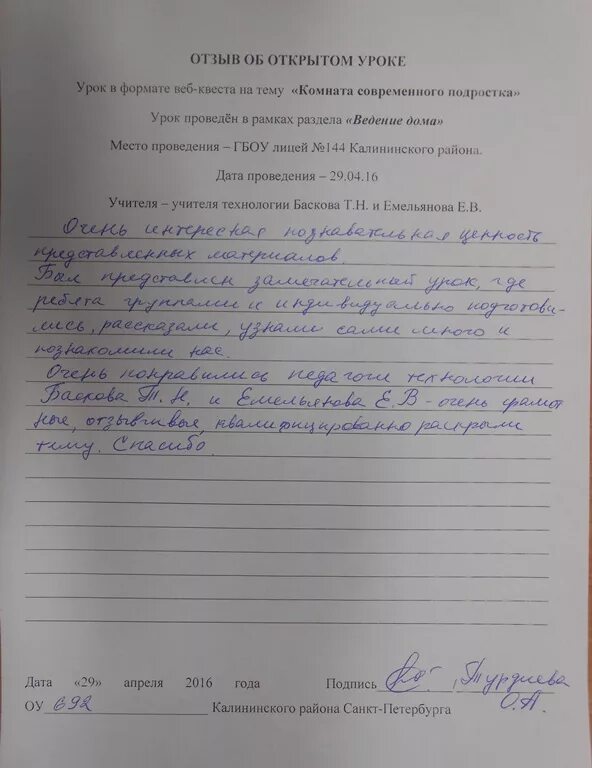 ОТЗЫВ ОБ ОТКРЫТОМ УРОКЕ
Урок в формате веб-квеста на тему «Комната современного подростка»
Урок проведён в рамках раздела «Ведение дома»
Место проведения – ГБОУ лицей №144 Калининского района.
Дата проведения – 29.04.16
Учителя – учителя технологии Баскова Т.Н. и Емельянова Е.В.
Очень интересная познавательная ценность
представленных материалов.
Был представлен замечательный урок, где
ребята группами и индивидуально подготови-
лись, рассказали, узнали сами много и
познакомили нас.
Очень понравились педагоги технологии
Баскова Т.Н. и Емельянова Е.В - очень грамот
ные, отзывчивые, квалифицированно раскрыли
тему. Спасибо.
Дата «29» апреля 2016 года Подпись Турдиева
ОУ 692 Калининского района Санкт-Петербурга О.А.